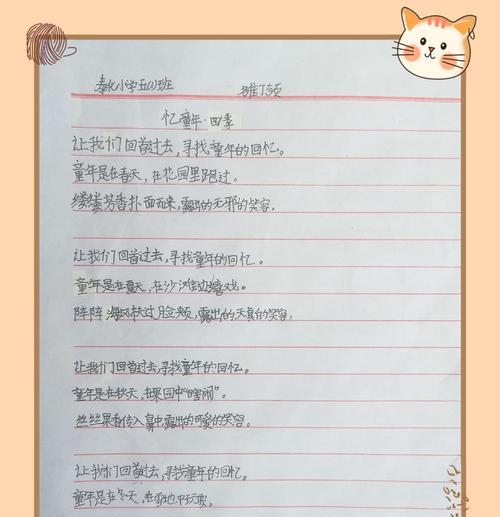 奉化小学五(2)班
忆童年·四季
让我们回首过去,寻找童年的回忆。
童年是在春天,在花园里跑过。
缕缕芳香扑面而来,露出的无邪的笑容。
让我们回首过去,寻找童年的回忆。
童年是在夏天,在沙滩边嬉戏。
阵阵海风扶过脸颊,露出的天真的笑容。
让我们回首过去,寻找童年的回忆。
童年是在秋天,在果园中“瞎闹”。
丝丝果香传入鼻中露出的可爱的笑容。
让我们回首过去,寻找童年的回忆。
童年是在冬天,在雪地中玩耍。